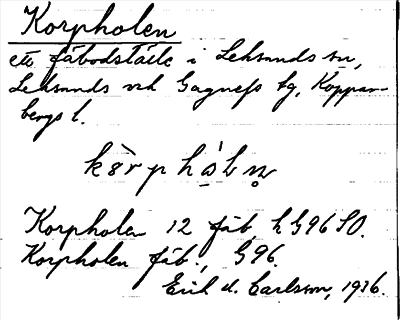 Korpholen
ett fäbodställe i Leksands sn,
Leksands och Gagnefs tg, Koppar-
bergs l.
Korpholen 12 fäb, h G96 SO.
Korpholen fäb., G96.
Erik A. Carlsson, 1916.